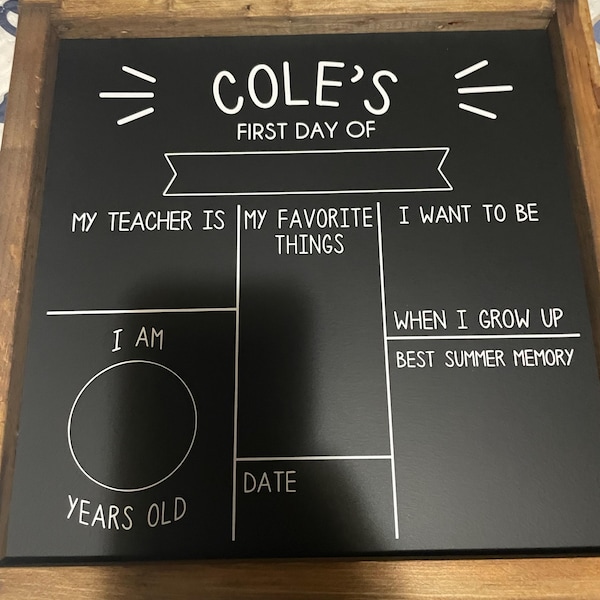 COLE'S
FIRST DAY OF
MY TEACHER IS
MY FAVORITE
THINGS
I WANT TO BE
WHEN I GROW UP
I AM
YEARS OLD
BEST SUMMER MEMORY
DATE